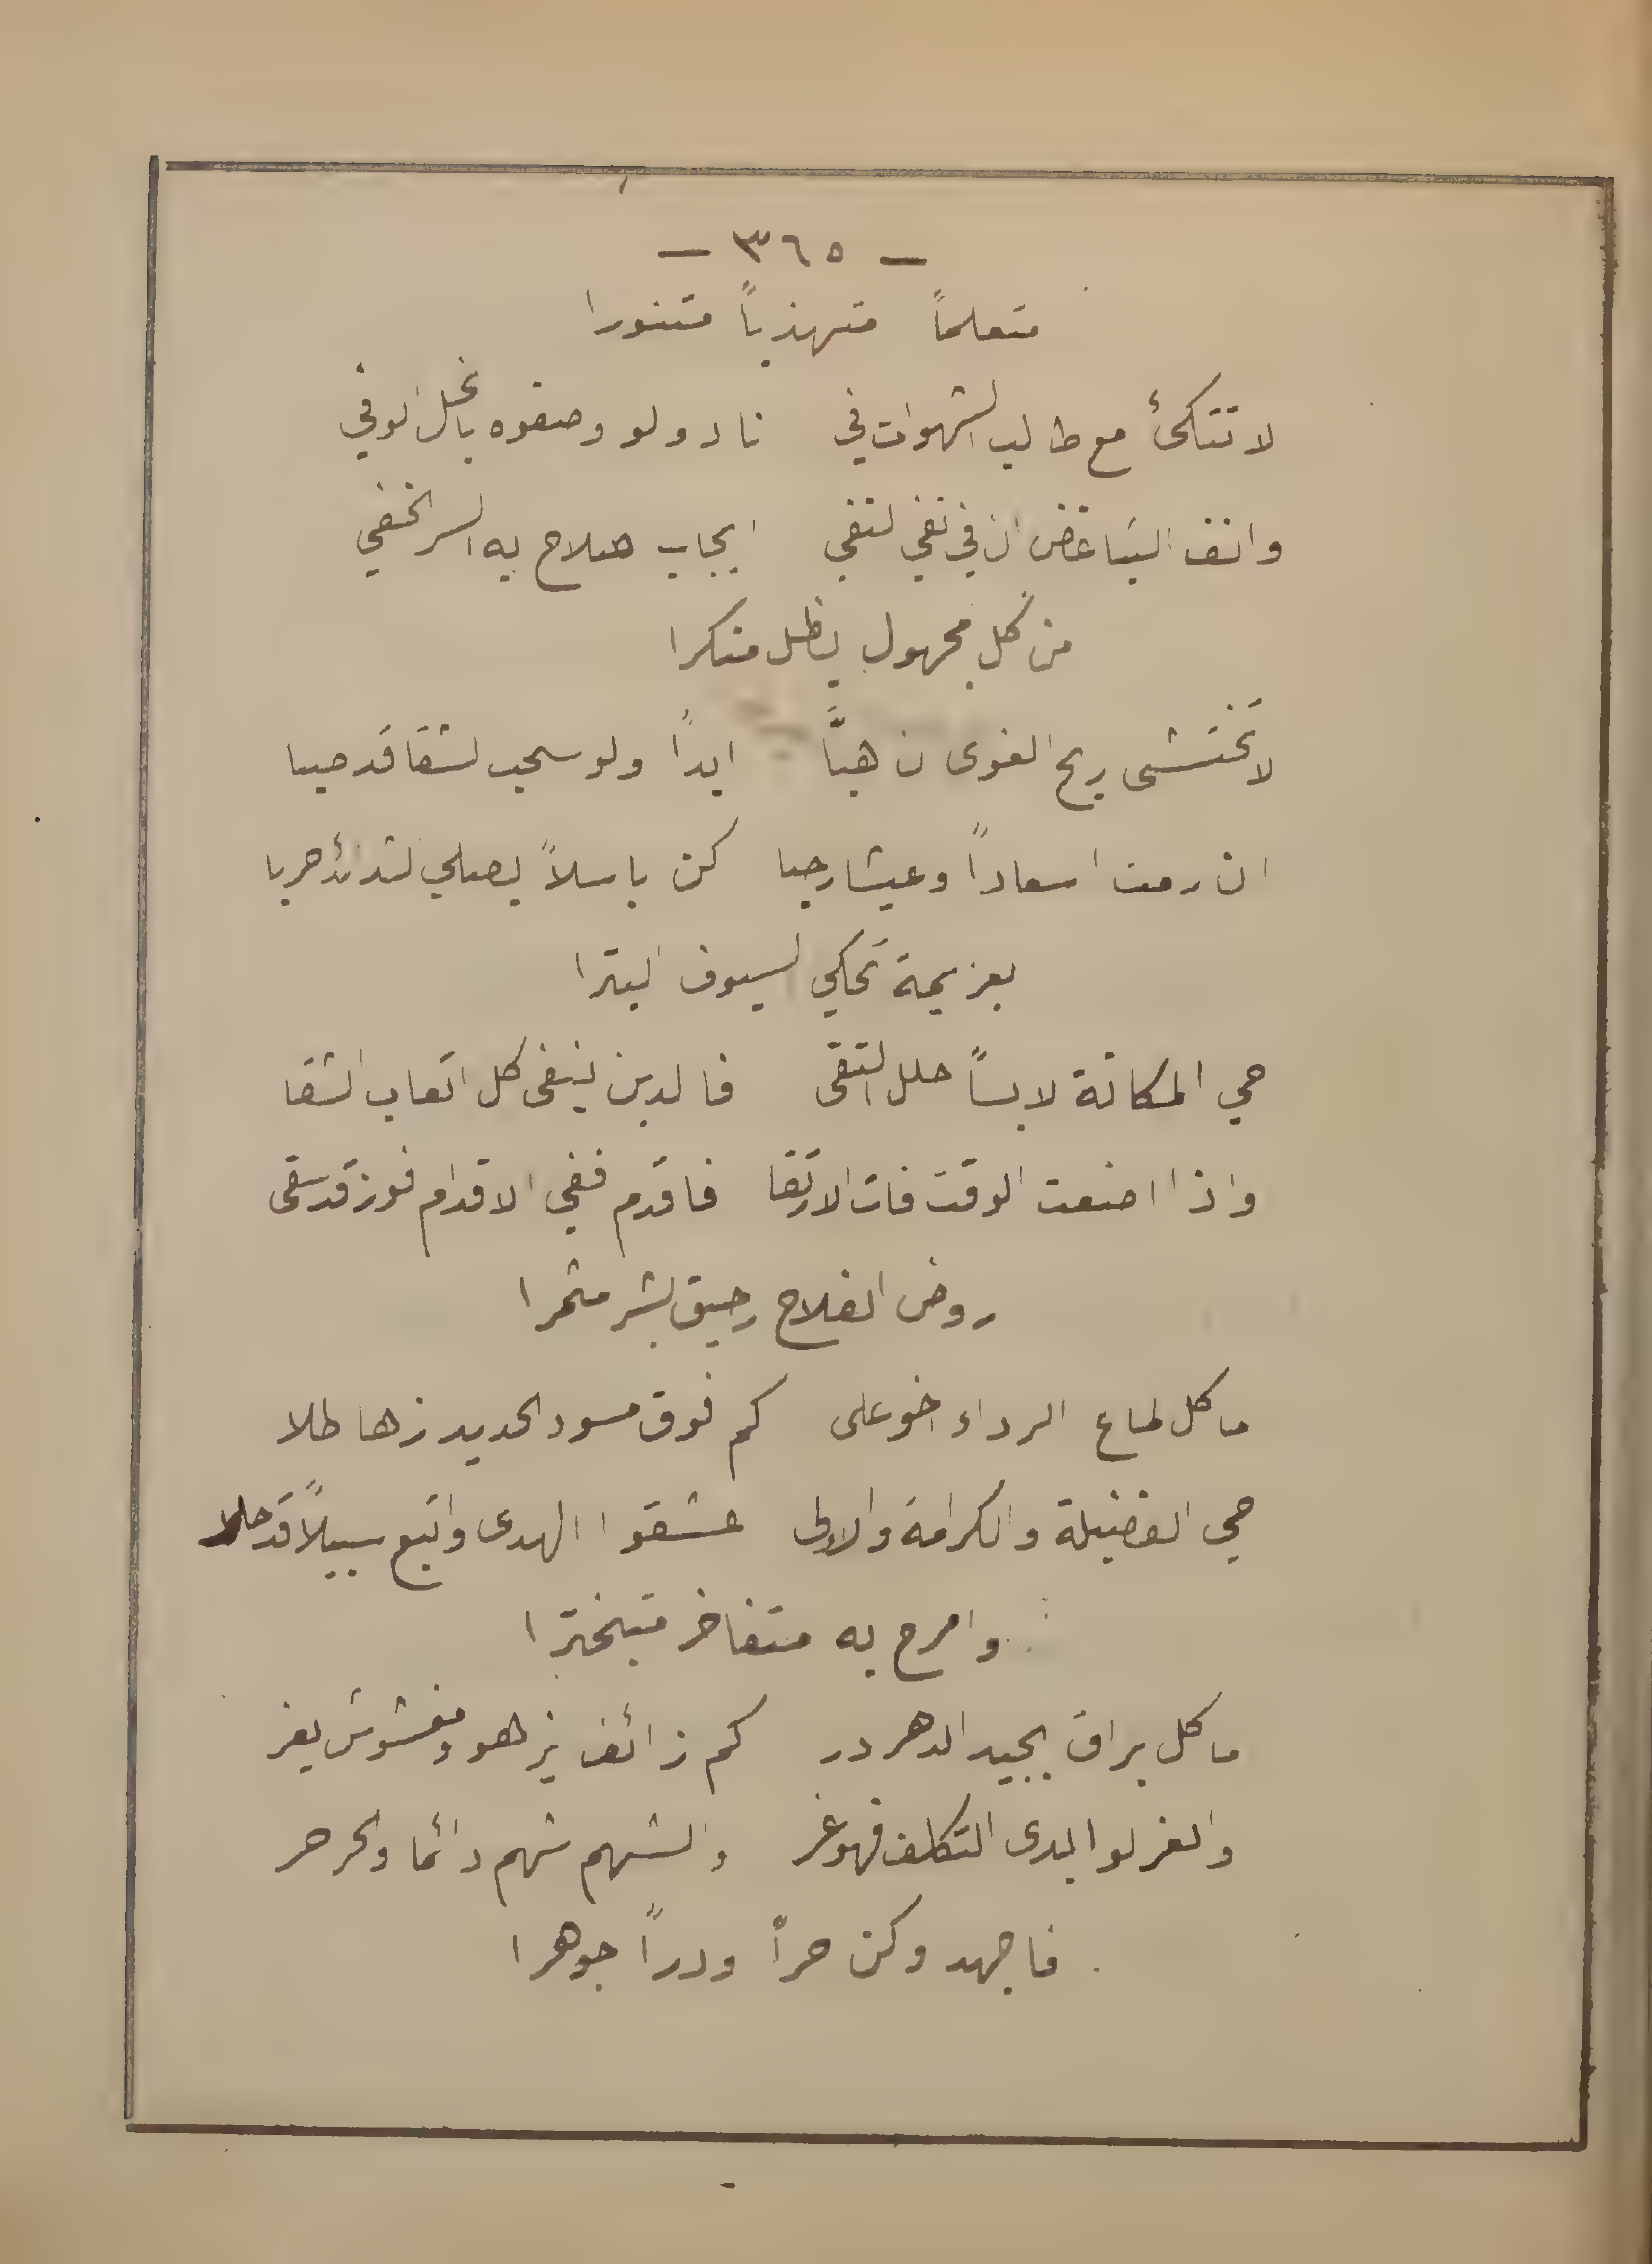 — ٣٦٥ —
متعلماً متهذباً متنورا
لا تتكئ مع طالب الشهوات في ناد ولو وصفوه بالخل الوفي
وانف التباغض ان في نفي لنفي ايجاب صلاح به السر الخفي
من كل مجهول يظل منكرا
لا تختشى ريح الغوى ان هبَّا ابداً ولو سحب الشقا قد صبا
ان رمت اسعاداً وعيشا رحبا كن باسلاً يصلي الشدائد حربا
بعزيمة تحكي السيوف البترا
حي المكانة لابساً حلل التقى فالدين ينفى كل اتعاب الشقا
واذا اضعت الوقت فات الارتقا فاقدم ففي الاقدام فوز قد سقى
روض الفلاح رحيق بشر مثمرا
ما كل لماع الرداء اخو على كم فوق مسود الحديد زها طلا
حي الفضيلة والكرامة والاولى عشقوا الهدى واتبع سبيلاً قد حلا
وامرح به متفاخر متبخترا
ما كل براق بجيد الدهر در كم زائف يزهو ومغشوش يغر
والغر لو ابدى التكلف فهو غر والشهم شهم دائما والحر حر
فاجهد وكن حراً ودراً جوهرا